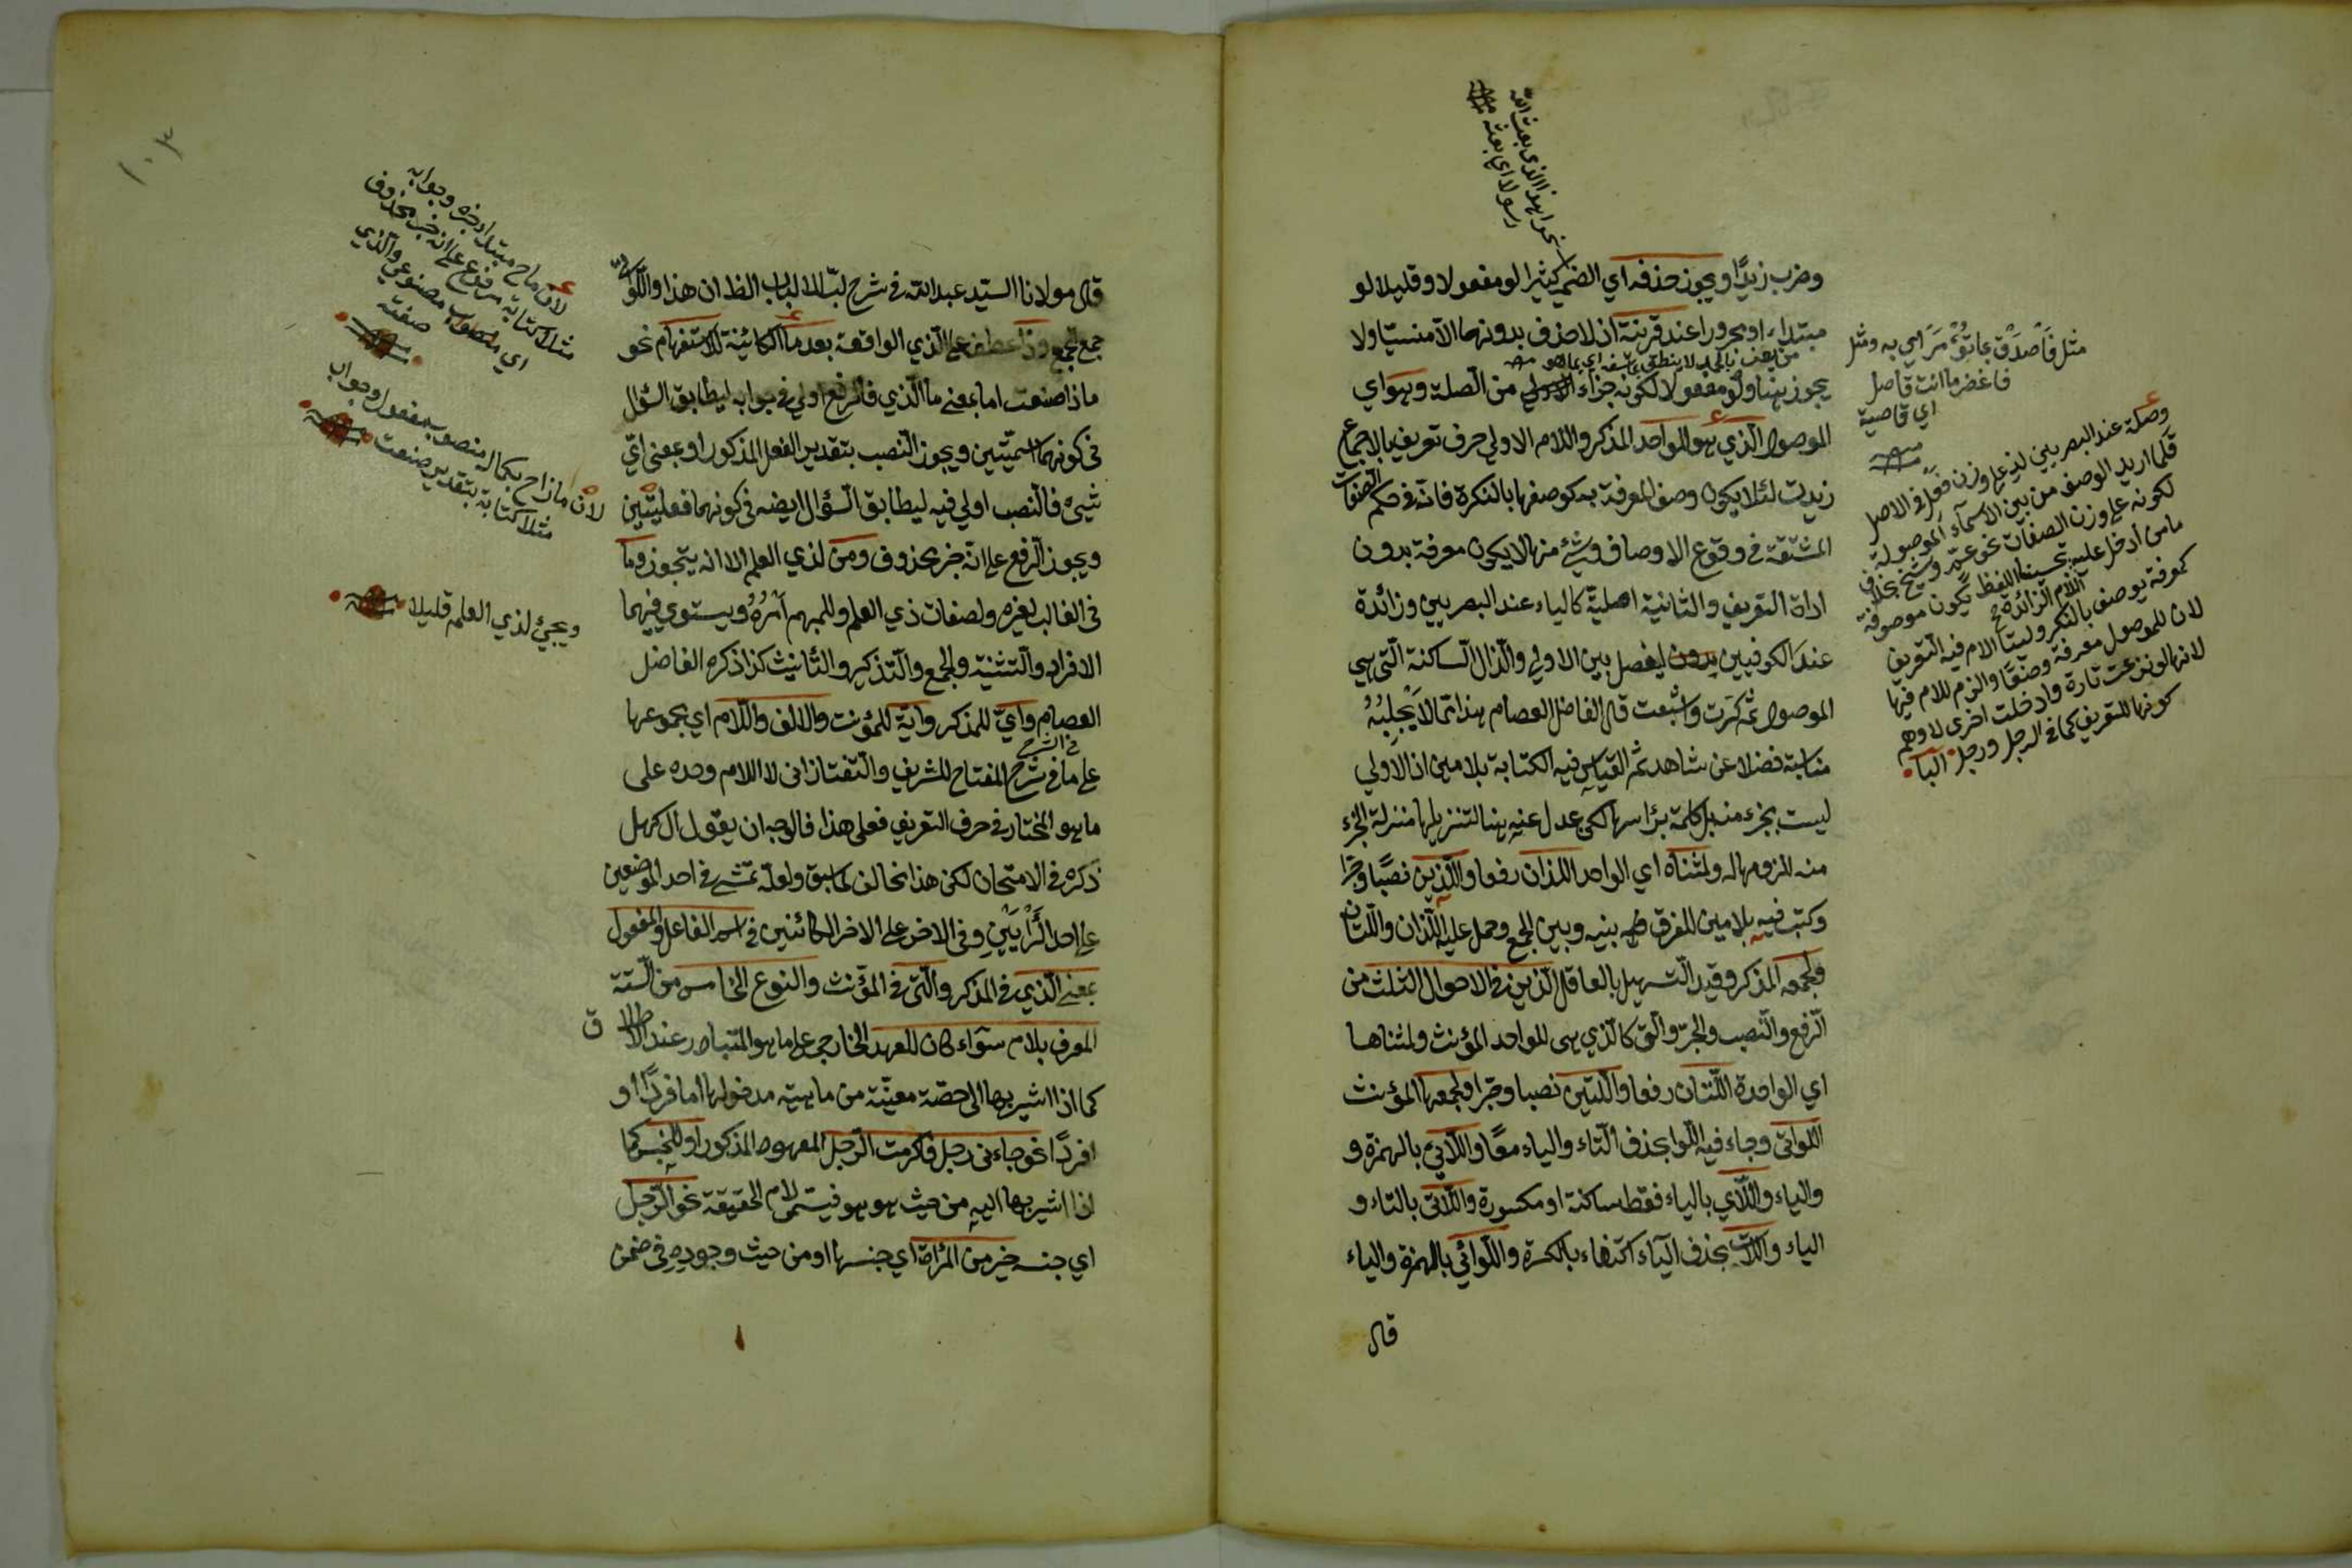 وضرب زيدًا ويجوز حذفه اي الضمير كثيرا لو مفعولا وقليلا لو
مبتداء او مجرورا عند قرينة اذ لا حذف بدونها الا منسيّا ولا
يجوز هنا ولو مفعولا لكونه جزاء من الصلة وهو اي
الموصول الّذي هو للواحد المذكر واللام الاولي حرف تعريف بالاجماع
زيدت لئلا يكون وصف المعرفة به كوصفها بالنكرة فانّه في حكم الصفات
المشتقة في وقوع الاوصاف وشئ منها لا يكون معرفة بدون
اداة التعريف والثانية اصليّة كالياء عند البصريين وزائدة
عند الكوفيين ليفصل بين الاولي والذال الساكنة الّتي هي
الموصول ثم كسرت واشبعت قال الفاضل العصام هذا ممّا لا يجلبه
مناسبة فضلا عن شاهد ثم القياس فيه الكتابة بلامين اذ الاولي
ليست بجزء منه بل كلمة برأسها لكن عدل عنه هنا لتنزيلها منزلة الجزء
منه للزومها له ولمثناه اي الواحد اللذان رفعا واللّذين نصبًا وجرّا
وكتب فيه بلامين للفرق بينه وبين الجمع وحمل عليه اللّذان واللّتان
ولجمعه المذكر وقيد التسهيل بالعاقل الّذين في الاحوال الثلث من
الرفع والنّصب والجرّ والّتي كالّذي هي للواحد المؤنث ولمثناها
اي الواحدة اللّتان رفعا واللّتين نصبا وجرّا ولجمعها المؤنث
اللّواتي وجاء فيه اللّوا بحذف التّاء والياء معًا واللّائي بالهمزة و
والياء واللّاي بالياء فقط ساكنة او مكسورة واللّاتي بالتاء و
الياء واللّات بحذف الياء اكتفاء بالكسرة واللّوائي بالهمزة والياء
قال
نحو اهذا الذي بعث الله
رسولا اي بعثه
اي قاصية
وصلة عند البصريين لذ علي وزن فعل في الاصل
قلّما اريد الوصف من بين الاسماء الموصولة
لكونه علي وزن الصفات نحو عم وشيخ بخلاف
ما من أدخل عليه تحسينا للفظ يكون موصوفه
اللام الزائدة
لان الموصول معرفة وضعًا والزم اللام فيها
لانها لو نزعت تارة وادخلت اخرى لاوهم
كونها للتعريف كما في الرجل ورجل
١٠٣
قال مولانا السيّد عبد الله في شرح لبّ الالباب الظ ان هذا واللّوا
جمع الجمع وذا عطف علي الّذي الواقعة بعد ما الكائنة للاستفهام نحو
ماذا صنعت اما بمعني ما الّذي فالرفع اولي في جوابه ليطابق السؤال
في كونهما اسميّتين ويجوز النّصب بتقدير الفعل المذكور او بمعني ايّ
شيئ فالنصب اولي فيه ليطابق السّؤال ايضه في كونهما فعليّتين
ويجوز الرفع علي انّه خبر محذوف ومن لذي العلم الا انه يتجوز وما
في الغالب لغيره ولصفات ذي العلم وللمبهم أمرُهُ ويستوي فيهما
الافراد والتّثنية والجمع والتذكير والتّأنيث كذا ذكره الفاضل
العصام وايّ للمذكر وايّة للمؤنث والالف واللّام اي مجموعها
علي ما في شرح المفتاح للشريف والتّفتازاني لا اللام وحده علي
ما هو المختار في حرف التعريف فعلي هذا فالوجه ان يقول ال كهل
ذكره في الامتحان لكن هذا مخالف لما سبق ولعلّه تمشّي في احد الموضعين
علي احد الرّأيين وفي الاخر علي الاخر الكائنين في اسم الفاعل والمفعول
بمعني الّذي في المذكر والّتي في المؤنث والنوع الخامس من السّتة
المعرف بلام سوآء كان للعهد الخارجي علي ما هو المتبادر عند الاطلا ق
كما اذا اشير بها الى حصّة معيّنة من ماهية مدخولها اما فردًا او
افردًا نحو جاءني رجل فاكرمت الرّجل المعهود المذكور او للجنس كما
اذا اشير بها اليه من حيث هو هو فيتسمى لام الحقيقة نحو الرّجل
اي جنسه خير من المرأة اي جنسها او من حيث وجوده في ضمن
لان ما ح مبتداء وخبره وجوابه
مثلا كتابة مرفوع علي انه خبر محذوف
صفته
لان ماذا ح بكماله منصوب بمفعول وجوابه
مثلا كتابة بتقدير صنعت
ويجئ لذي العلم قليلا